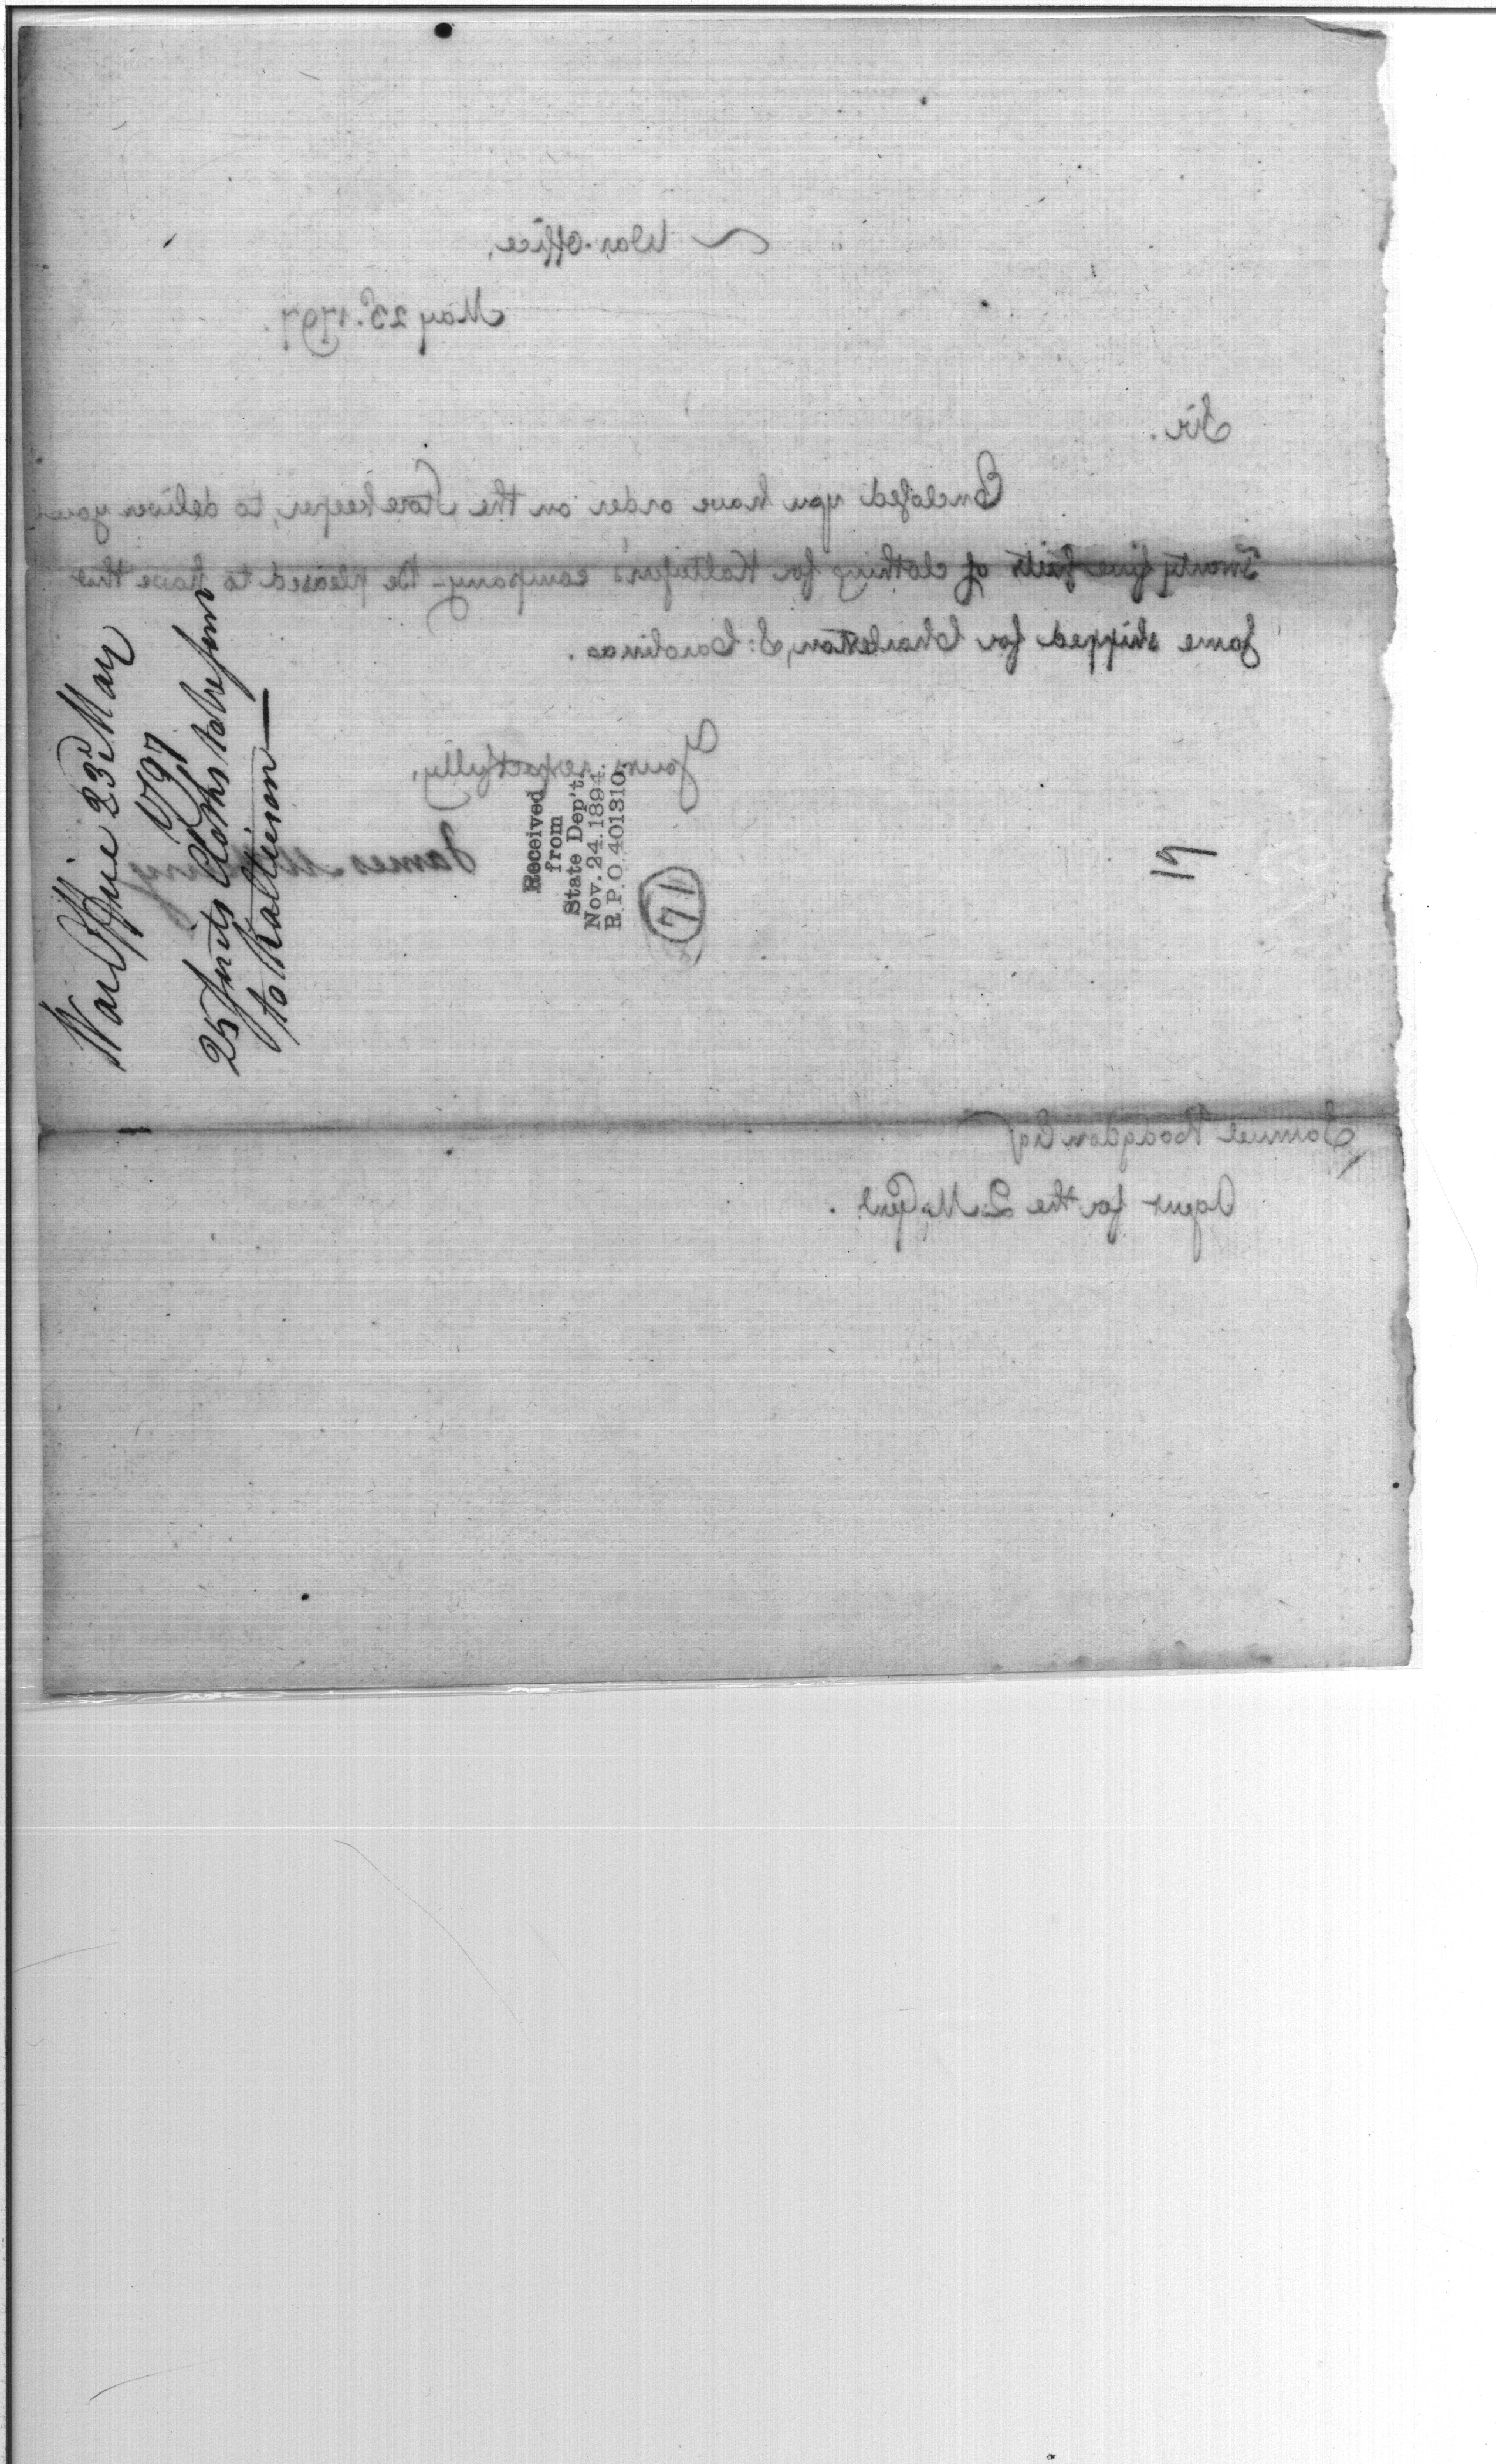 War Office,
May 23d. 1797.
Sir.
Enclosed you have order on the Storekeeper, to deliver you
Twenty five suits of clothing for Kalteisen's company - be pleased to have the
same shipped for Charleston, S: Carolina.
Yours respectfully,
James McHenry
Samuel Hodgdon Esqr
Agent for the Q. M. Genl.
War Office 23d May
1797
25 suits Cloths to be sent
to Kaltieson
Received
from
State Dep't.
Nov. 24. 1894.
R. P. O. 401310.
71
19